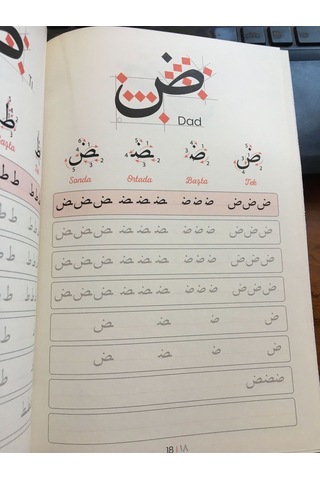 ض
Dad
ض ضـ ـضـ ـض
Sonda Ortada Başta Tek
ض ض ض ضـ ضـ ضـ ـضـ ـضـ ـضـ ـض ـض ـض
ض ض ض ضـ ضـ ضـ ـضـ ـضـ ـضـ ـض ـض ـض
ض ض ض ضـ ضـ ضـ ـضـ ـضـ ـضـ ـض ـض ـض
ض ض ض ضـ ضـ ضـ ـضـ ـضـ ـضـ ـض ـض ـض
ض ضـ ـضـ ـض
ض ضـ ـضـ ـض
ضضض
18 | ١٨